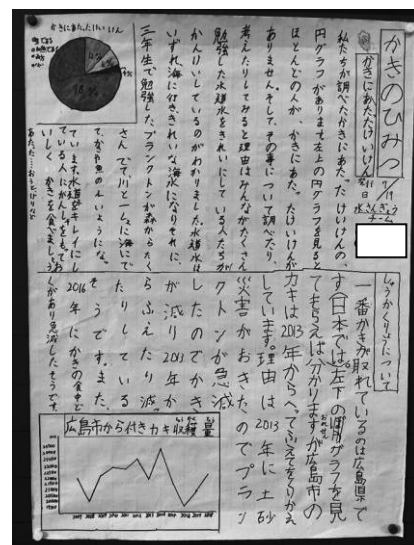 かきのひみつ
7/19
水さんぎょう
チーム
かきにあたったけいけん
私たちが調べたかきにあたったけいけんの、
円グラフがあります。左上の円グラフを見ると
ほとんどの人が、かきにあたったけいけんが
ありません。そして、その事について調べたり、
考えたりしてみると理由はみんながたくさん
勉強した水道水をきれいにしている人たちが
かんけいしているのがわかりました。水道水は
いずれ海に行き、きれいな海水になりそれに、
三年生で勉強した、プランクトンが森からたく
さんでて、川といっしょに海にで
て、かきや魚のえいように
ています。水道水をキレイにし
ている人にかんしゃをもってお
いしくかきを食べましょう。
かきにあたったけいけん
しゅうかくりょうについて
一番かきが取れているのは広島県で
す(日本では)左下の円グラフを見
てもらえば分かりますが広島市の
カキは2013年から
しています。理由は2013年に土砂
災害がおきたのでプラン
クトンが急減
したのでかき
が減り2013年か
らふえたり減っ
たりしている
そうです。また、
2016年にかきの食中ど
くがあり急減したそうです。
広島市から付きカキ収穫量